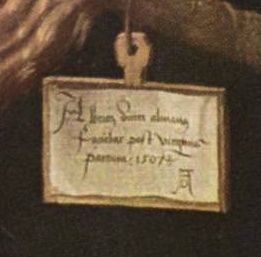 Albertus durer almanus
faciebat post virginis
partum · 1507
AD